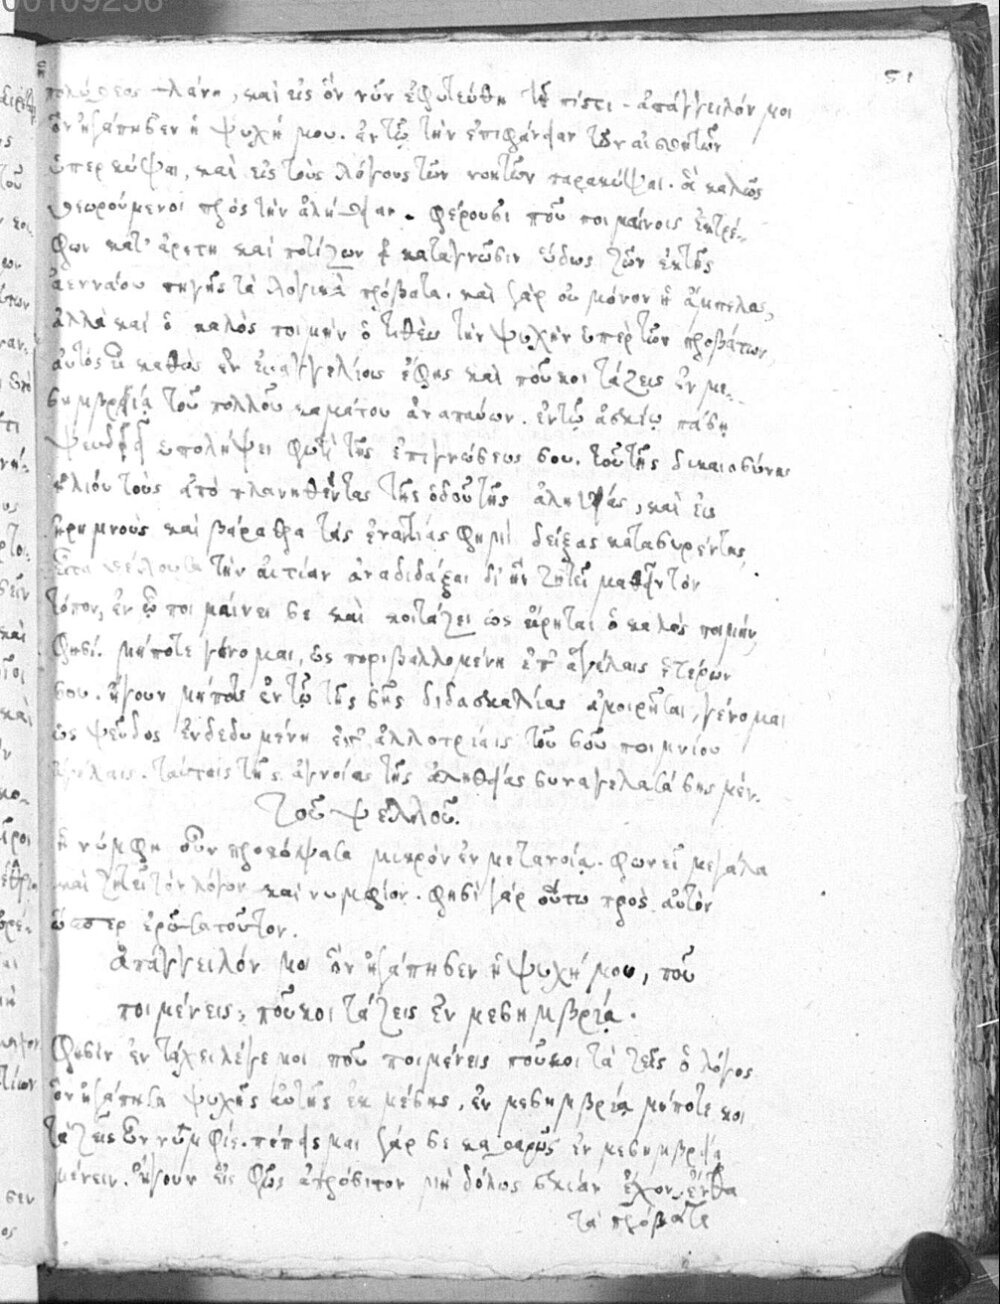 00109256
51
πολύθεος πλάνη, καὶ εἰς ὃν νῦν ἐφυτεύθη τῇ πίστι. ἀπάγγειλόν μοι
ὃν ἠγάπησεν ἡ ψυχή μου. ἐν τῷ τὴν ἐπιφάνειαν τῶν αἰσθητῶν
ὑπερκύψαι, καὶ εἰς τοὺς λόγους τῶν νοητῶν παρακύψαι. ἃ καλῶς
θεωρούμενοι πρὸς τὴν ἀλήθειαν. φέρουσι ποῦ ποιμαίνοις ἐκτρέ-
φων κατ' ἀρετὴ καὶ ποτίζων καταγνῶσιν ὕδως τῶν ἐκ τῆς
ἀεννάου πηγῆς τὰ λογικὰ πρόβατα. καὶ γὰρ οὐ μόνον ἡ ἄμπελος,
ἀλλὰ καὶ ὁ καλὸς ποιμὴν ὁ τιθεὼ τὴν ψυχὴν ὑπὲρ τῶν προβάτων,
αὐτὸς καθὼς ἐν εὐαγγελίοις ἔφης καὶ ποῦ κοιτάζεις ἐν με-
σημβρίᾳ τοῦ πολλοῦ καμάτου ἀναπαύων. ἐν τῷ ἀσκίῳ πάσῃ
ψευδεῖ ὑπολήψει φωτὶ τῆς ἐπιγνώσεως σου. τοῦ τῆς δικαιοσύνης
ἡλίου τοὺς ἀποπλανηθέντας τῆς ὁδοῦ τῆς ἀληθείας, καὶ εἰς
κρημνοὺς καὶ βάραθρα τὰς ἐναντίας φησὶ δείξας κατασυρέντας,
εἶτα θέλουσα τὴν αἰτίαν ἀναδιδάξαι δι' ἣν ζητεῖ μαθεῖν τὸν
τόπον, ἐν ᾧ ποιμαίνει σε καὶ κοιτάζει ὡς εἴρηται ὁ καλὸς ποιμήν,
φησί. μήποτε γένομαι, ὡς περιβαλλομένη ἐπ' ἀγέλαις ἑτέρων
σου. ἤγουν μήπως ἐν τῷ τῆς σῆς διδασκαλίας ἀμοιρῆσαι, γένομαι
ὡς ψεῦδος ἐνδεδυμένη ἐπ' ἀλλοτρίαις τοῦ σοῦ ποιμνίου
ἀγέλαις. ταύταις τῆς ἀγνοίας τῆς ἀληθείας συναγελασάσης μέν.
Τοῦ ψελλοῦ.
ἡ νύμφη οὖν προκόψασα μικρὸν ἐν μετανοίᾳ. φωνεῖ μεγάλα
καὶ ζητεῖ τὸν λόγον καὶ νυμφίον. φησὶ γὰρ οὕτω πρὸς αὐτὸν
ὥσπερ ἐρῶσα τοῦτον.
ἀπάγγειλόν μοι ὃν ἠγάπησεν ἡ ψυχή μου, ποῦ
ποιμένεις, ποῦ κοιτάζεις ἐν μεσημβρίᾳ.
Φησὶν ἐν τάχει λέγε μοι ποῦ ποιμένεις ποῦ κοιτάζεις ὁ λόγος
ὃν ἠγάπησα ψυχῆς αὐτῆς ἐκ μέσης, ἐν μεσημβρίᾳ μήποτε κοι
τάζεις ὢν νύμφιε. πέπεισμαι γάρ σε καθαρῶς ἐν μεσημβρίᾳ
μένειν. ἤγουν εἰς φῶς ἀπρόσιτον μὴ δόλως σκιὰν ἔχον, ἔνθα
τὰ πρόβατα